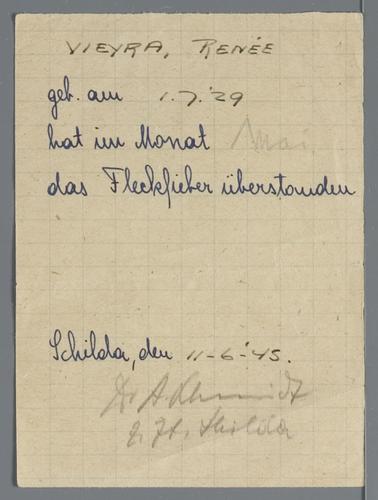 VIEYRA, RENÉE
geb. am 1.7.'29
hat im Monat Mai
das Fleckfieber überstanden
Schilda, den 11-6-'45.
Dr A Schmidt
z. Zt. Schilda